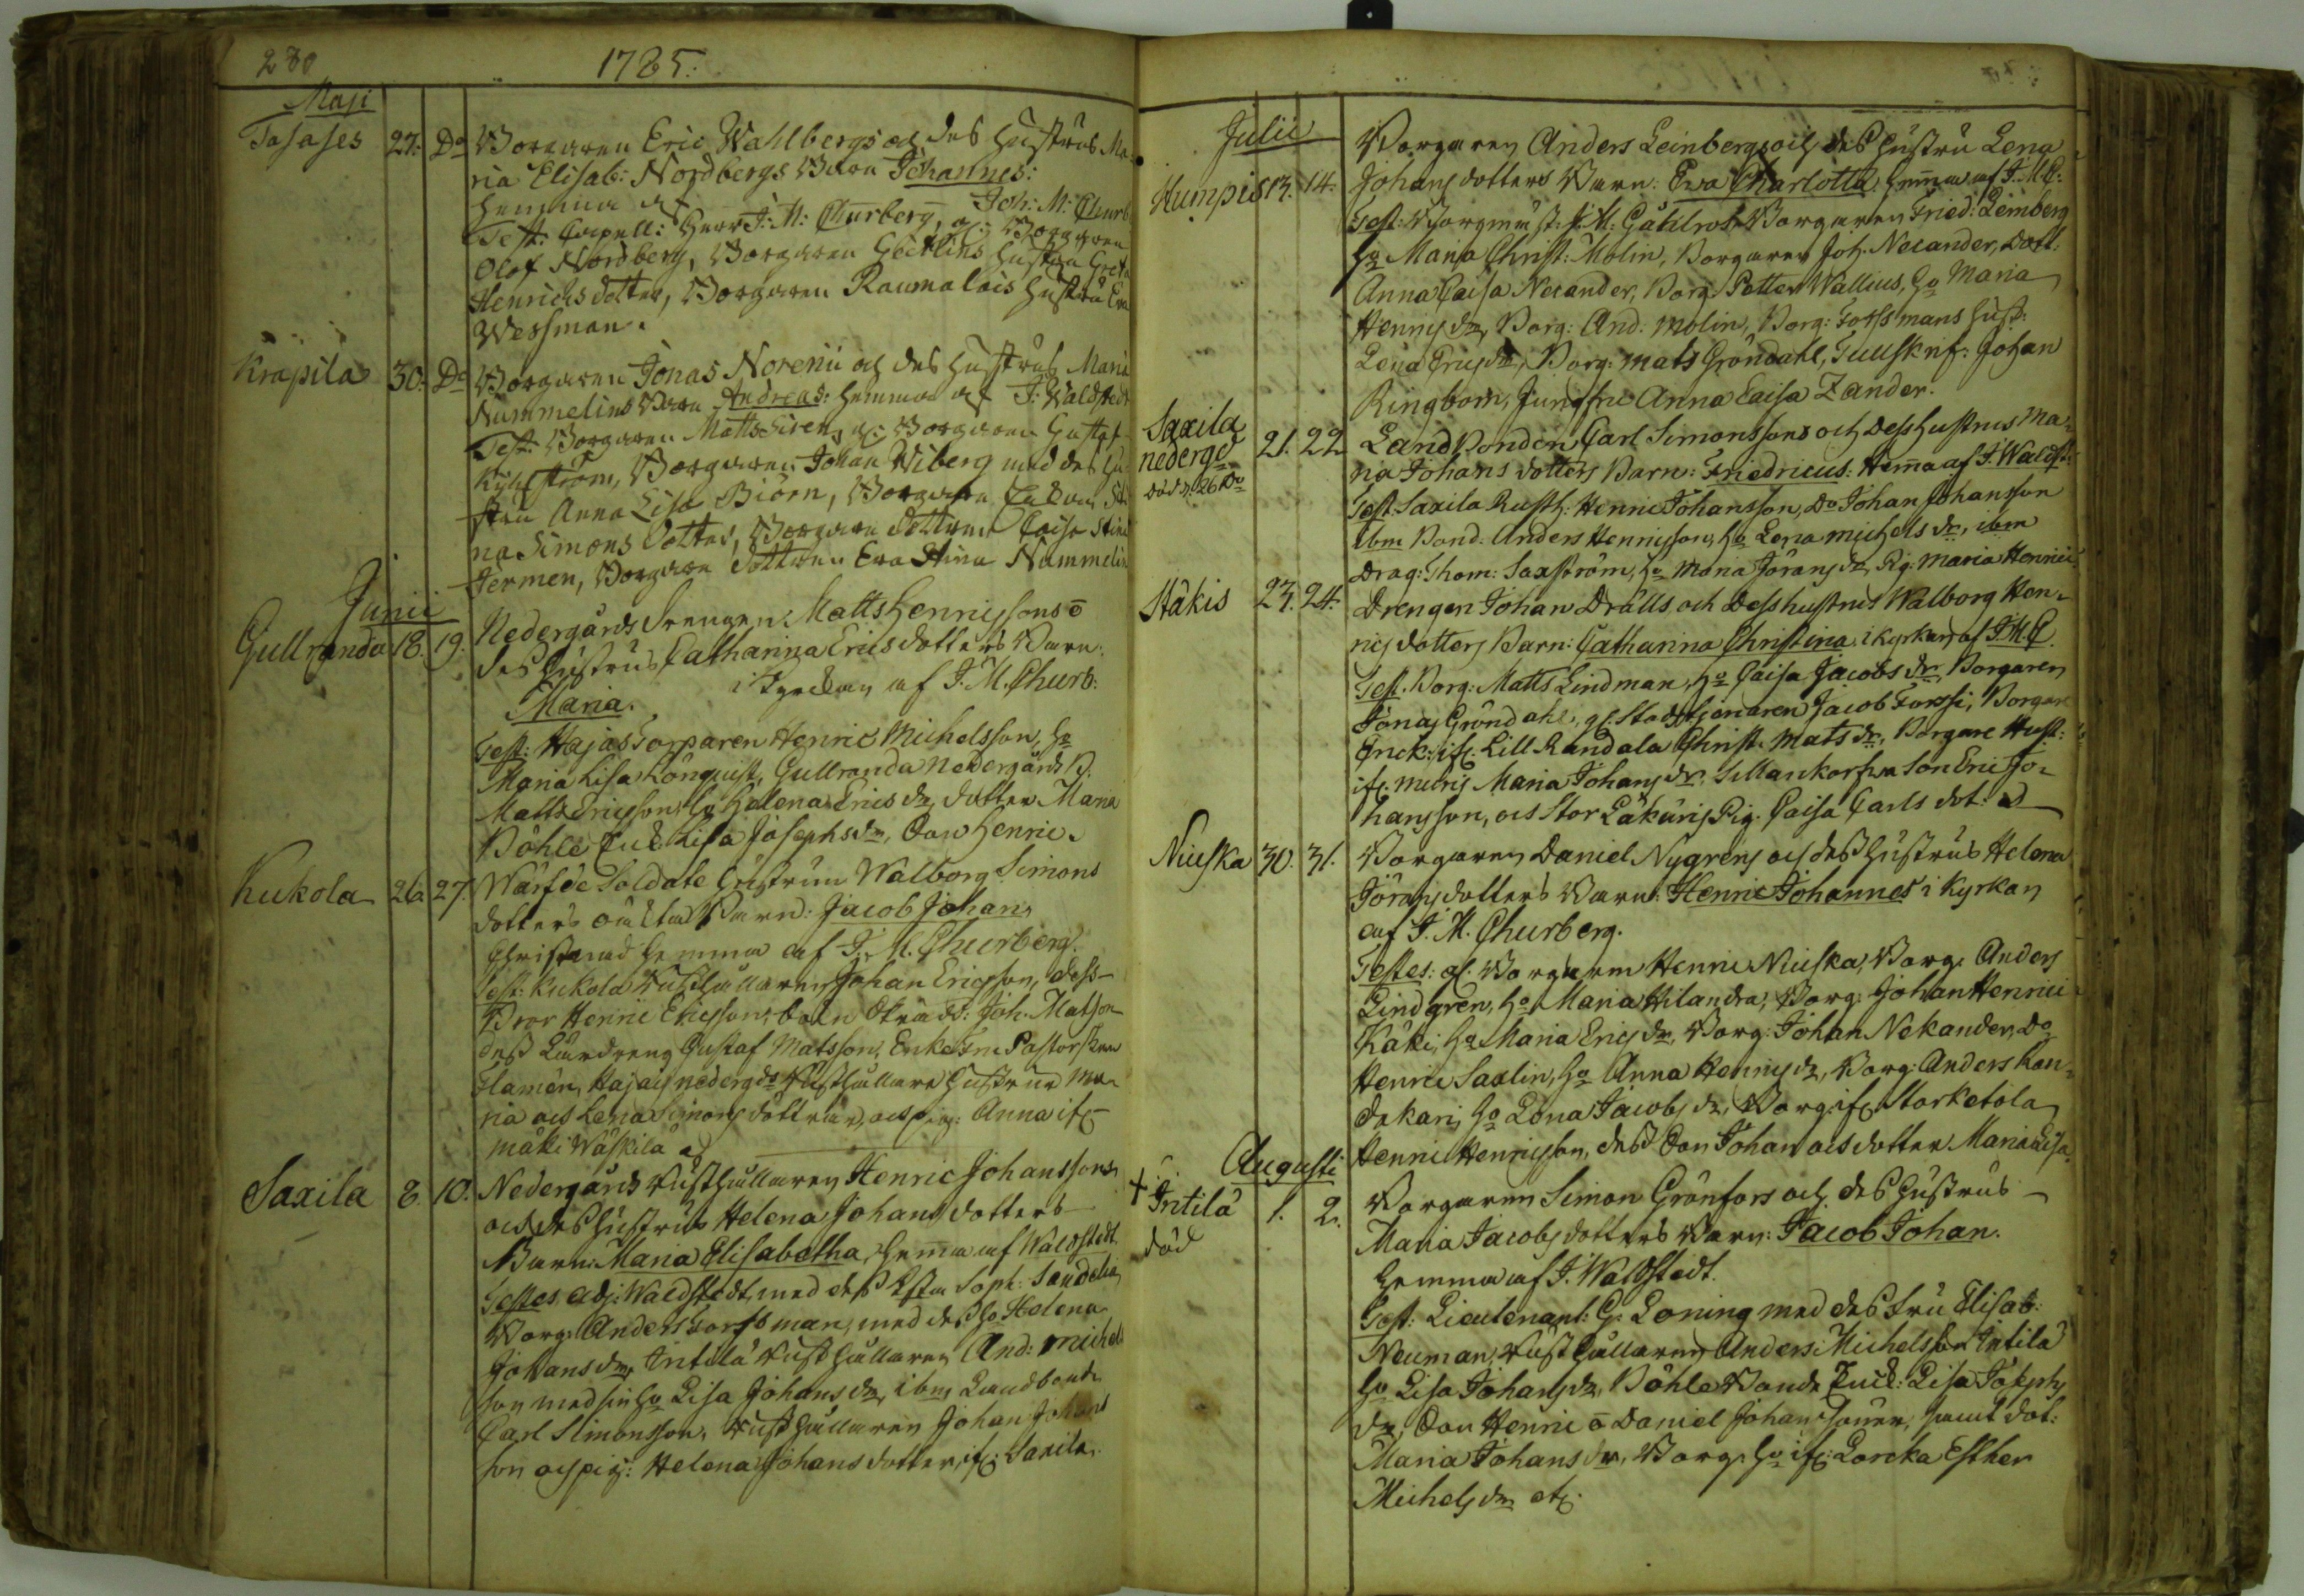 280
1785.
Maji
Tasases 27. Do Borgaren Eric Wahlbergs och des Hustrus Ma-
ria Elisab: Nordbergs Barn Johannes:
hemma af Joh: M: Churb
Test: Capell: Herr J: M: Churberg, gl: Borgaren
Olof Nordberg, Borgaren hustru Greta
Henrics dotter, Borgaren Raumalais hustru Eva
Wessman.
Krapila 30. Do Borgaren Jonas Norenii och des hustrus Maria
Nummelins Barn Andreas: hemma af J: Waldstedt
Test: Borgaren Matts Siren, gl: Borgaren Gustaf
Borgaren Johan Wiberg med des hu-
stru Anna Lisa Biörn, Borgare Enkan
na Simons dotter, Borgare dottren Caisa Stina
Termen, Borgare dottren Eva Stina Nummelin
Junii
Gullranda 18. 19. Nedergårds Drengen Matts Henricssons o
des hustrus Catharina Ericsdotters Barn:
Maria. i Kyrckan af J. M. Churb:
Test: Hajas Torparen Henric Michelsson, ho
Maria Lisa Lönquist, Gullranda Nedergårds B.
Matts Ericsson, ho Helena Erics dr, dotter Maria
Böhle Enk. Lisa Josephsdr, Son Henric.
Kukola 26. 27. Wärfde Soldate hustrun Walborg Simons
dotters oäkta Barn: Jacob Johan,
Christnad hemma af J. M. Churberg.
Test: Kukola Rusthållaren Johan Ericsson, dess
Bror Henric Ericsson, Joh. Matson
dess Landreng Gustaf Matsson, Enkefru Pastorskan
Flamén, Hajais nedergds Rusthållare hustrur Ma-
ria och Lena Simons döttrar, och pig: Anna if:
mäki Wäskilä
Saxila 8. 10. Nedergårds Rusthållaren Henric Johanssons
och des hustrus Helena Johans dotters
Barn: Maria Elisabetha, hemma af Waldstedt.
Testes Adj: Waldstedt, med des Soph: Sandelia
Borg: Anders Forsman, med des ho Helena
Johansdr, Intilä Rusthållaren And: Michels
son med sin ho Lisa Johans dr, ibm Landbond
Carl Simonsson, Rusthållaren Johan Johans
son och pig: Helena Johans dotter, if: Saxila.
Julii
Humpis 13. 14. Borgaren Anders Leinbergs och des hustru Lena
Johans dotters Barn: Eva Charlotta, hemma af J. M. C:
Test: Borgmäst: J. M: Borgaren Fried: Leinberg
ho Maria Christ: Molin, Borgaren Joh. Necander, Dott:
Anna Caisa Necander, Borg. Petter Wallius, ho Maria
Henrics dr, Borg: And: Molin, Borg: Forssmans hust:
Lena Erics dr, Borg: Mats Gröndahl, Tullskrif: Johan
Ringbom, Jungfru Anna Caisa Zander.
Saxila
nedergd 21. 22 Land Bonden Carl Simonssons och dess hustrus Ma-
död d. 26 Do
ria Johans dotters Barn: Friedricus: Hemma af J. Waldst:
Test. Saxila Rusth: Henric Johansson, Do Johan Johansson
ibm Bond. Anders Henricsson, ho Lena Michels dr, ibm
Drag: Thom: Saxström, ho Maria Jörans dr, Pig: Maria Henrici
Stäkis 23. 24. Drengen Johan Drälls och dess hustrus Walborg Hen-
rics dotters Barn: Catharina Christina. i kyrkan af J. M. C.
Test. Borg: Matts Lindman, ho Caisa Jacobs dr, Borgaren
Jonas Gröndahl, gl. Stads tjenaren Jacob Forssi, Borgare
Enck: if: Lill Randala Christ. Mats dr, Borgare Hust:
if: Meris Maria Johans dr. Son Eric Jo-
hansson, och Stor Läkäris Pig. Caisa Carls dot:
Niuska 30. 31. Borgaren Daniel Nygrens och des hustrus Helena
Jörans dotters Barn: Henric Johannes i Kyrkan
af J. M. Churberg.
Testes: gl. Borgaren Henric Niuska, Borg: Anders
Lindgren, ho Maria Hilandra, Borg: Johan Henrici
Käki, ho Maria Erics dr, Borg: Johan Nekander, Do
Henric Saxlin, ho Anna Henrics dr, Borg: Anders Kan-
dekari, ho Lena Jacobs dr, Borg: if: Storketola
Henric Henricsson, des Son Johan och dotter Maria Lisa.
Augusti
+ Intilä 1. 2. Borgaren Simon Grönfors och des hustrus
död
Maria Jacobs dotters Barn: Jacob Johan.
hemma af J. Waldstedt.
Test: Lieutenant: G: Loning med des fru Elisab:
Neuman, Rusthållaren Anders Michelsson Intilä
ho Lisa Johans dr, Böhle Bonde Enck: Lisa Josephs
dr, Son Henric o Daniel Johanssöner, samt dot:
Maria Johans dr, Borg: ho if: Lorcka Esther
Michels dr etc.